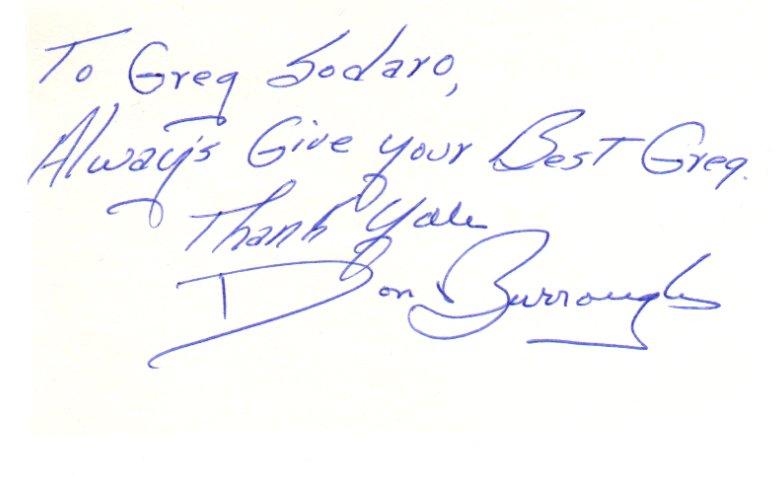 To Greg Sodaro,
Always Give your Best Greg.
Thank You
Don Burroughs